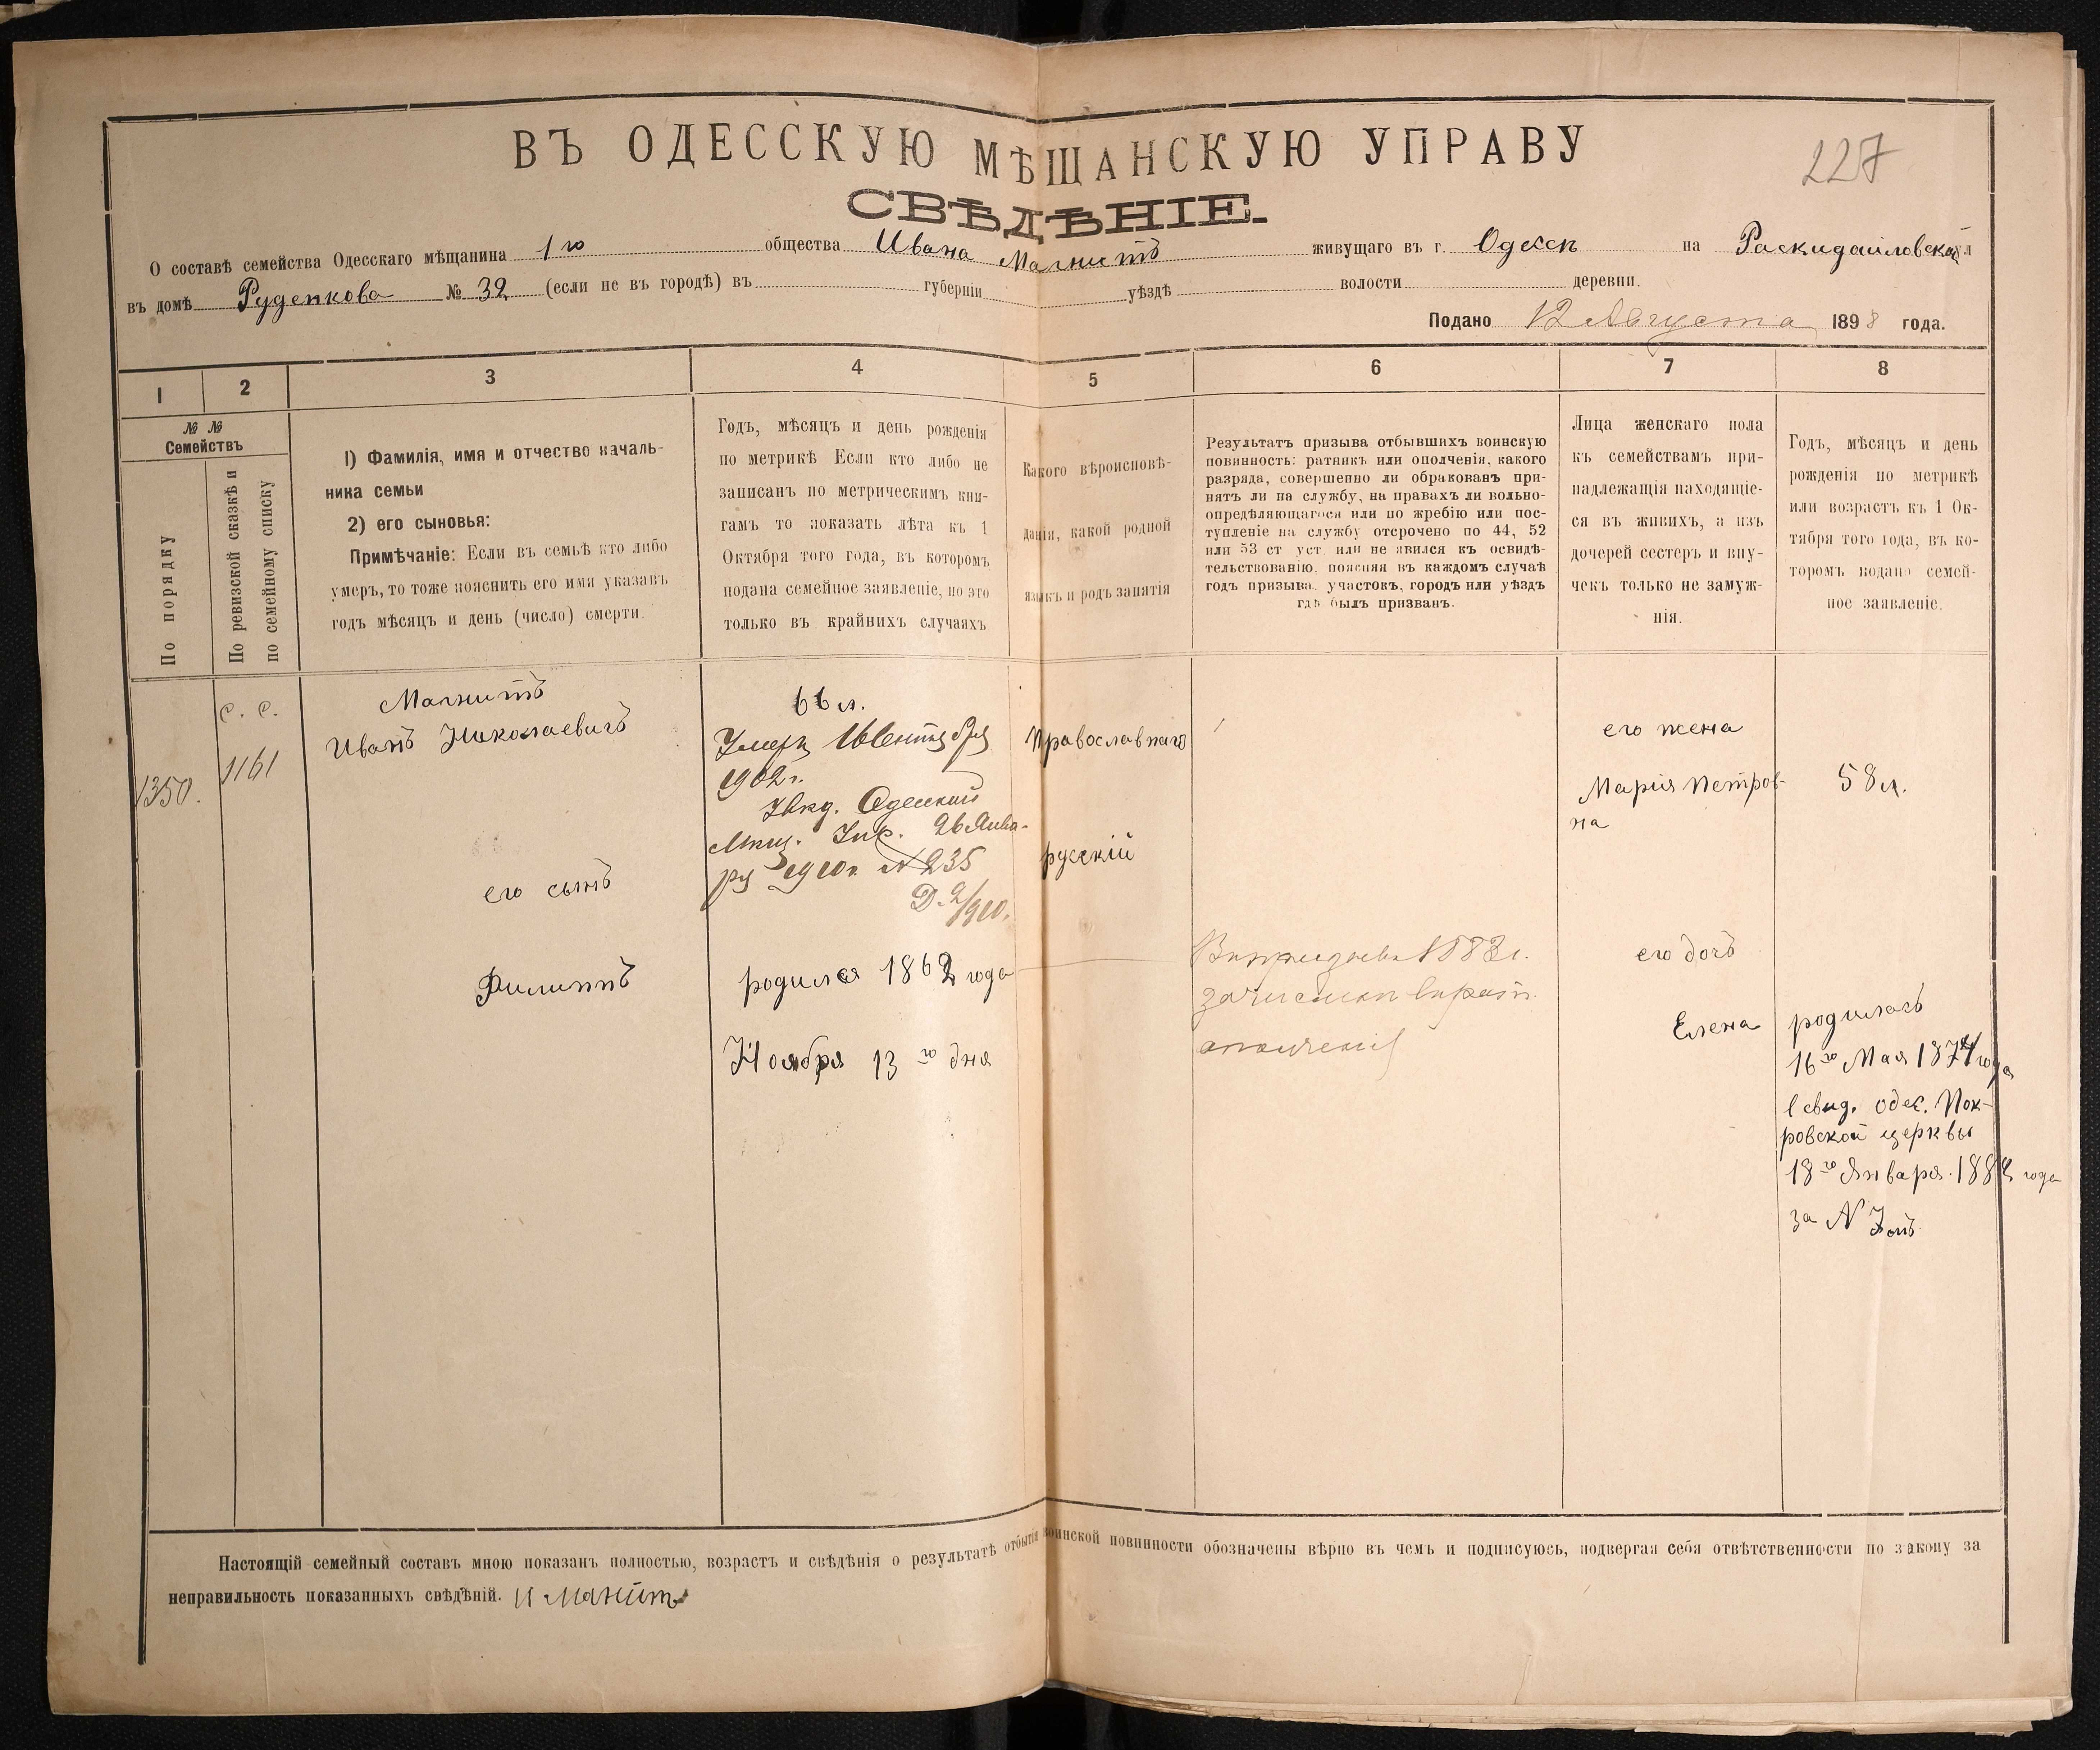 ВЪ ОДЕССКУЮ МѢЩАНСКУЮ УПРАВУ
227
СВѢДѢНІЕ.
О составѣ семейства Одесскаго мѣщанина 1го общества Ивана Магнитъ живущаго въ г. Одессѣ на Раскидайловской ул
въ домѣ Руденкова № 32 (если не въ городѣ) въ губерніи уѣздѣ волости деревни.
Подано 12 Августа 1898 года.
1 2 3 4 5 6 7 8
№ №
Семействъ
По порядку
По ревизской сказкѣ и
по семейному списку
1) Фамилія, имя и отчество началь-
ника семьи
2) его сыновья:
Примѣчаніе: Если въ семьѣ кто либо
умеръ, то тоже пояснить его имя указавъ
годъ мѣсяцъ и день (число) смерти.
Годъ, мѣсяцъ и день рожденія
по метрикѣ Если кто либо не
записанъ по метрическимъ кни-
гамъ то показать лѣта къ 1
Октября того года, въ которомъ
подана семейное заявленіе, но это
только въ крайнихъ случаяхъ
Какого вѣроисповѣ-
данія, какой родной
языкъ и родъ занятія
Результатъ призыва отбывшихъ воинскую
повинность: ратникъ или ополченія, какого
разряда, совершенно ли обракованъ при-
нятъ ли на службу, на правахъ ли вольно-
опредѣляющагося или по жребію или пос-
тупленіе на службу отсрочено по 44, 52
или 53 ст уст. или не явился къ освидѣ-
тельствованію, поясняя въ каждомъ случаѣ
годъ призыва, участокъ, городъ или уѣздъ
гдѣ былъ призванъ.
Лица женскаго пола
къ семействамъ при-
надлежащія находящіе-
ся въ живихъ, а изъ
дочерей сестеръ и вну-
чекъ только не замуж-
нія.
Годъ, мѣсяцъ и день
рожденія по метрикѣ
или возрастъ къ 1 Ок-
тября того года, въ ко-
торомъ подано семей-
ное заявленіе.
1350.
с. с.
1161
Магнитъ
Иванъ Николаевичъ
его сынъ
Филиппъ
66 л.
Умеръ Сентября
1902 г.
Увѣд. Одесской
Мѣщ. Упр. 26 Янва-
ря 1910 г. № 235
Д. 2/910.
родился 1862 года
Ноября 13го дня
Православнаго
русскій
1883 г.
зачисленъ въ рат.
ополченія
его жена
Марія Петров-
на
58 л.
его дочь
Елена
родилась
16го Мая 1874 года
свид. одес. Пок-
ровской церквы
18го Января 188 года
за №
Настоящій семейный составъ мною показанъ полностью, возрастъ и свѣдѣнія о результатѣ отбытія воинской повинности обозначены вѣрно въ чемъ и подписуюсь, подвергая себя отвѣтственности по закону за
неправильность показанныхъ свѣдѣній. И Манитъ